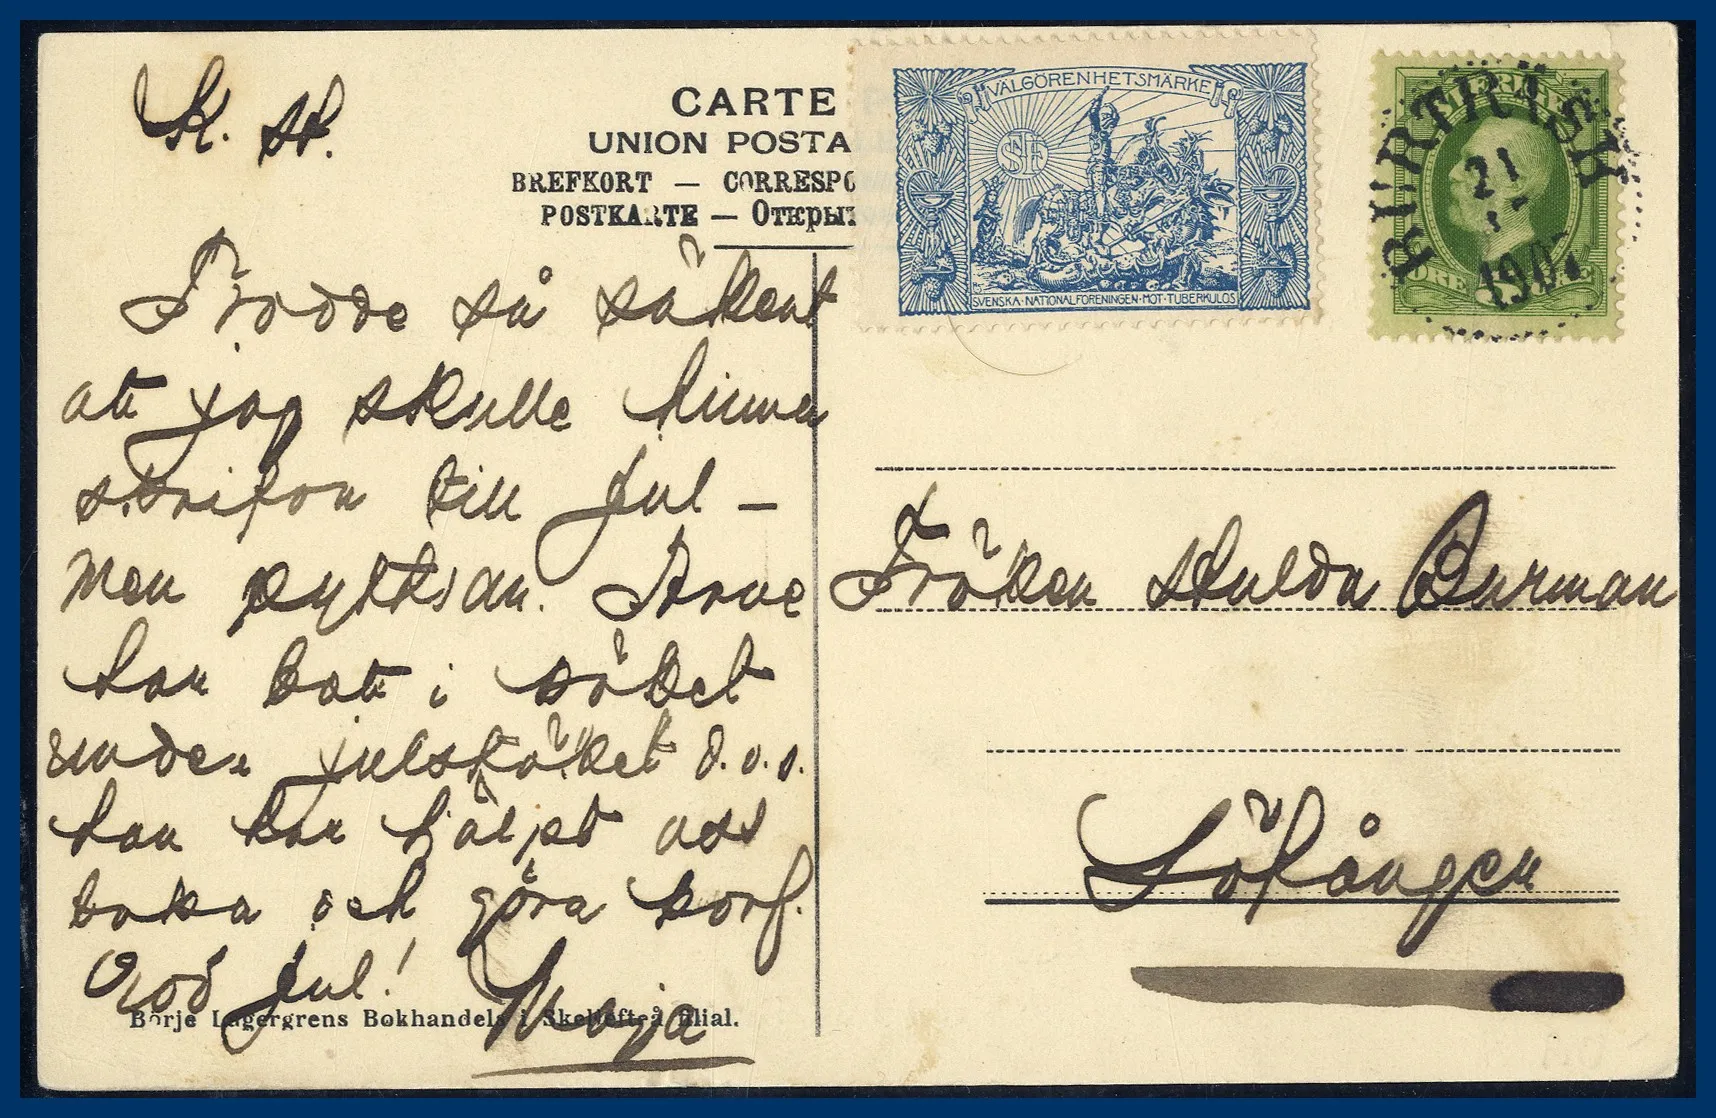 K. st.
CARTE
UNION POSTA
BREFKORT — CORRESPO
POSTKARTE — Открыт
Trodde så säkert
att jag skulle hinna
skrifva till Jul –
men pytt san. Arne
har satt i söket
under julstöket d.v.s.
han har hjälpt oss
baka och göra korf.
God Jul! Maja
Börje Lagergrens Bokhandels i Skellefteå filial.
VÄLGÖRENHETSMÄRKE
SNF
SVENSKA·NATIONALFÖRENINGEN·MOT·TUBERKULOS
SVERIGE
ÖRE 5 ÖRE
BURTRÄSK
21
1907
Fröken Hulda Burman
Löfången